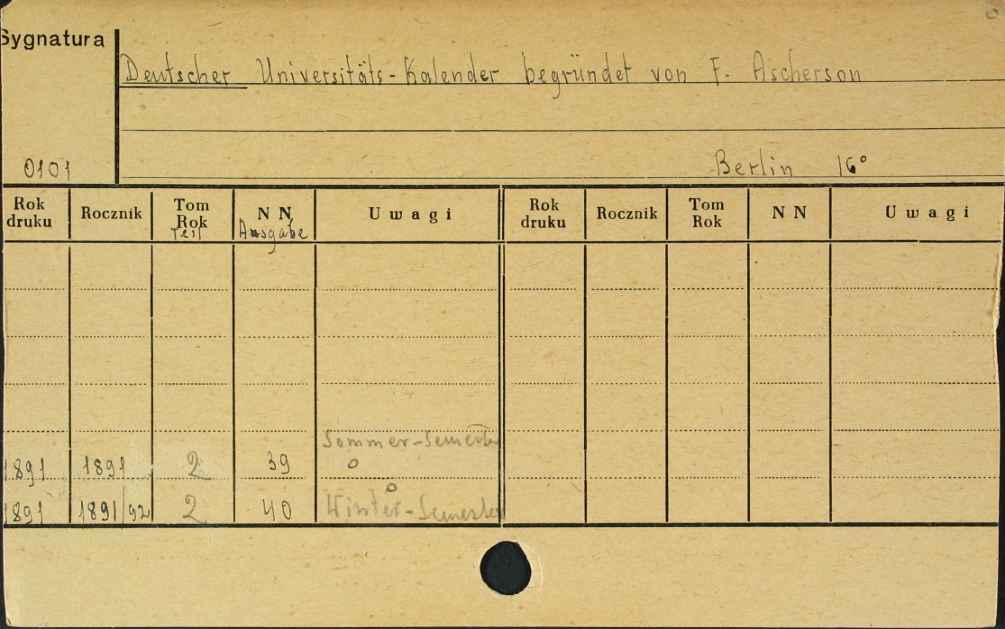 Sygnatura
Deutscher Universitäts-Kalender begründet von F. Ascherson
0101
Berlin 16°
Rok druku Rocznik Tom Rok N N Uwagi Rok druku Rocznik Tom Rok N N Uwagi
Teil Ausgabe
Sommer-Semester
1891 1891 2 39
1891 1891/92 2 40 Winter-Semester